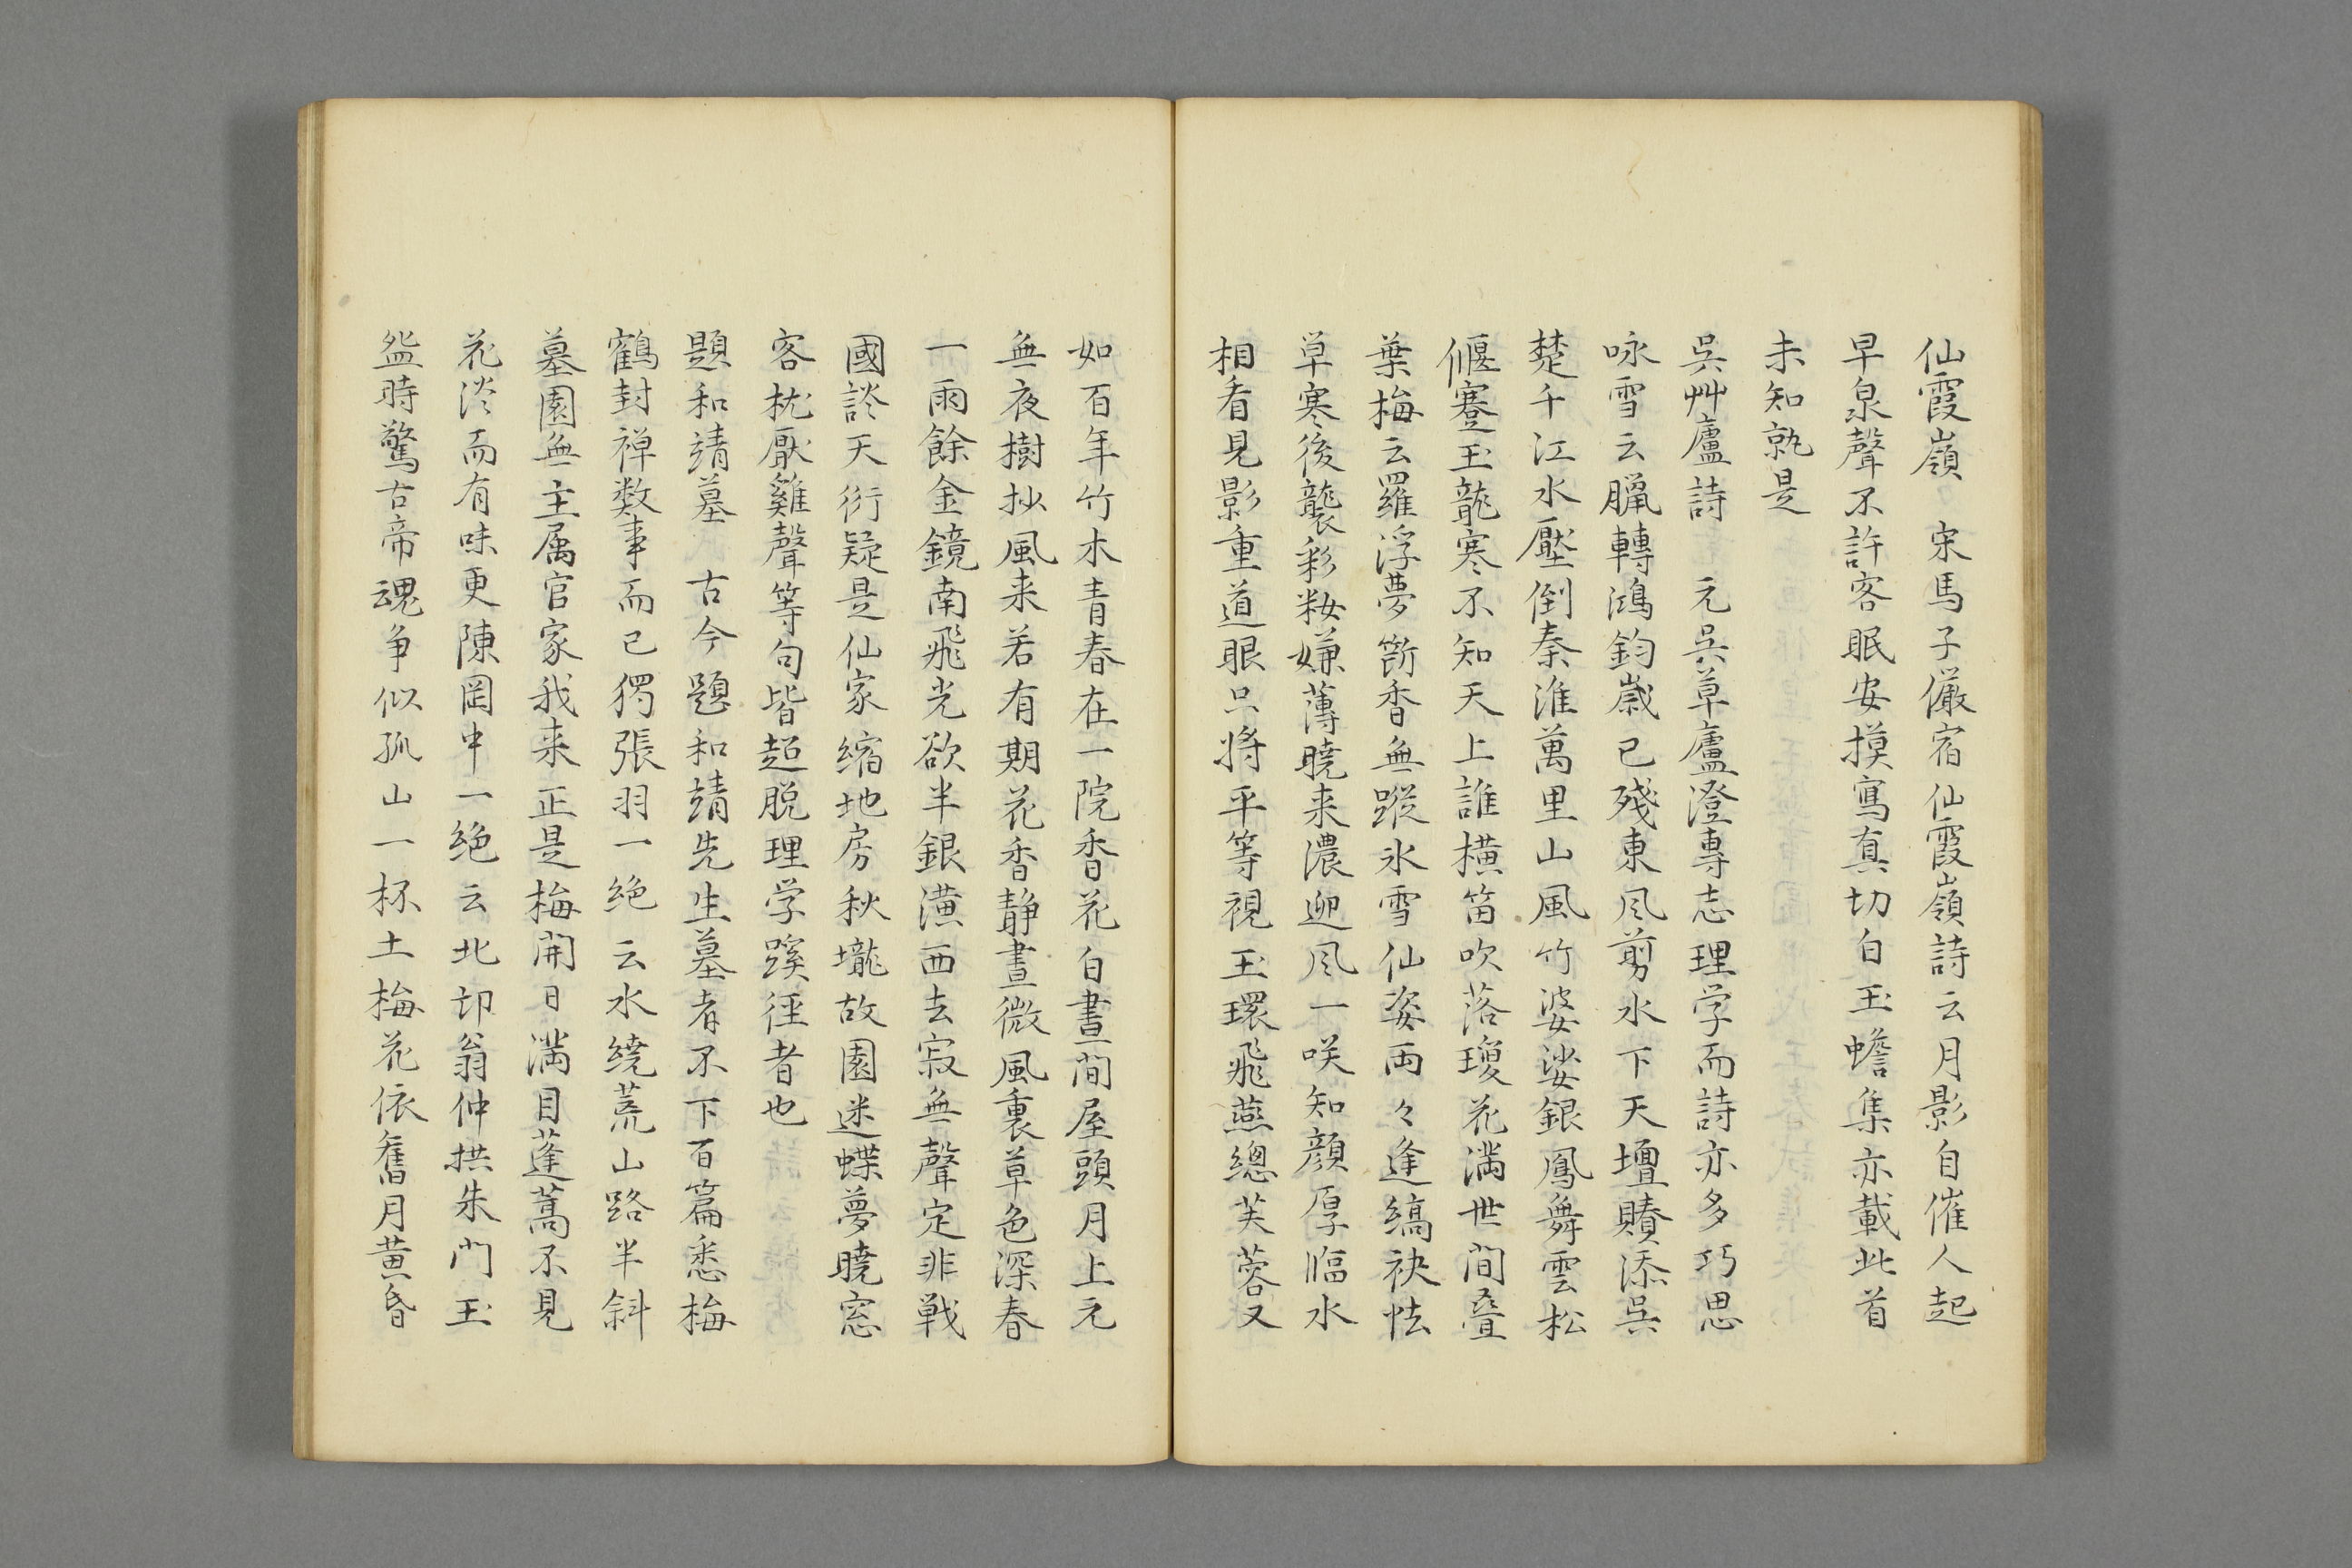 仙霞嶺　宋馬子儼宿仙霞嶺詩云月影自催人起
早泉聲不許客眠安摸寫真切白玉蟾集亦載此首
未知孰是
吳艸廬詩　元吳草廬澄專志理学而詩亦多巧思
咏雪云臘轉鴻鈞歲已殘東风剪水下天壇賸添吳
楚千江水壓倒秦淮萬里山風竹婆娑銀鳳舞雲松
偃蹇玉龍寒不知天上誰橫笛吹落瓊花満世間叠
葉梅云羅浮夢斷香無蹤氷雪仙姿両々逢縞袂怯
草寒後襲彩粧嫌薄曉来濃迎风一咲知顔厚臨水
相看見影重道眼只將平等視玉環飛燕總芙蓉又
如百年竹木青春在一院香花白晝間屋頭月上元
無夜樹抄風来若有期花香靜晝微風裏草色深春
一雨餘金鏡南飛光欲半銀潢西去寂無聲定非戦
國談天衍疑是仙家縮地房秋壠故園迷蝶夢曉窓
客枕厭雞聲等句皆超脱理学蹊徑者也
題和靖墓　古今題和靖先生墓者不下百篇悉梅
鶴封禅数事而已獨張羽一絶云水繞荒山路半斜
墓園無主属官家我来正是梅開日満目蓬蒿不見
花淡而有味更陳岡中一絶云北邙翁仲拱朱門玉
盌時驚古帝魂争似孤山一杯土梅花依舊月黄昏